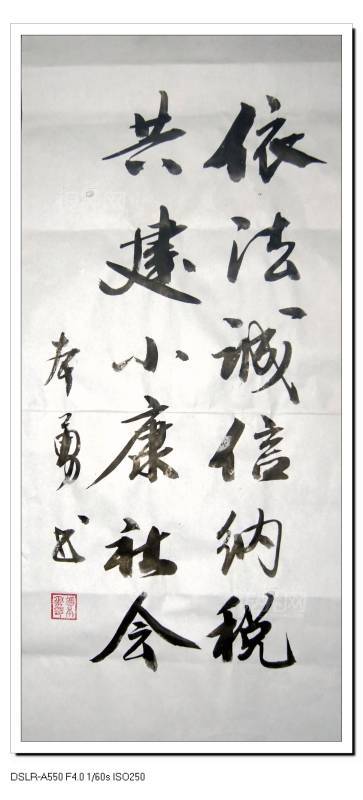 依法诚信纳税
共建小康社会
李勇书
DSLR-A550 F4.0 1/60s ISO250